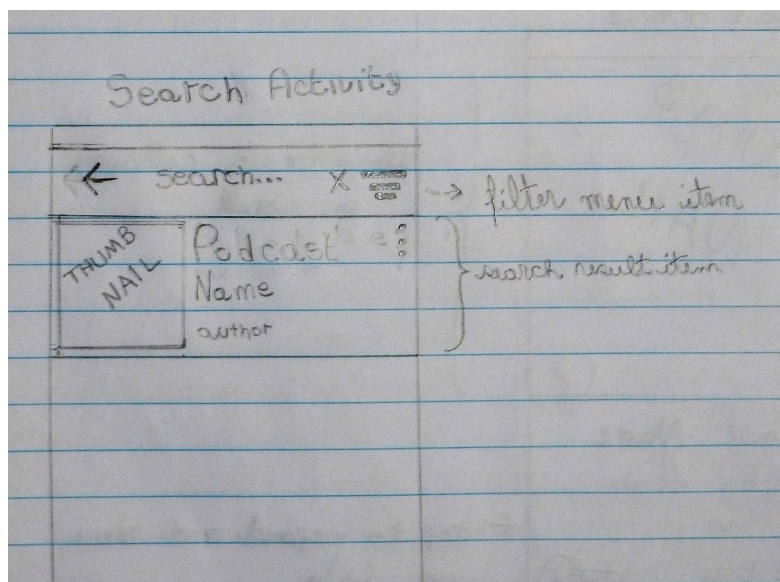 Search Activity
← search... X
filter menu item
THUMB
NAIL
Podcast
Name
author
search result item